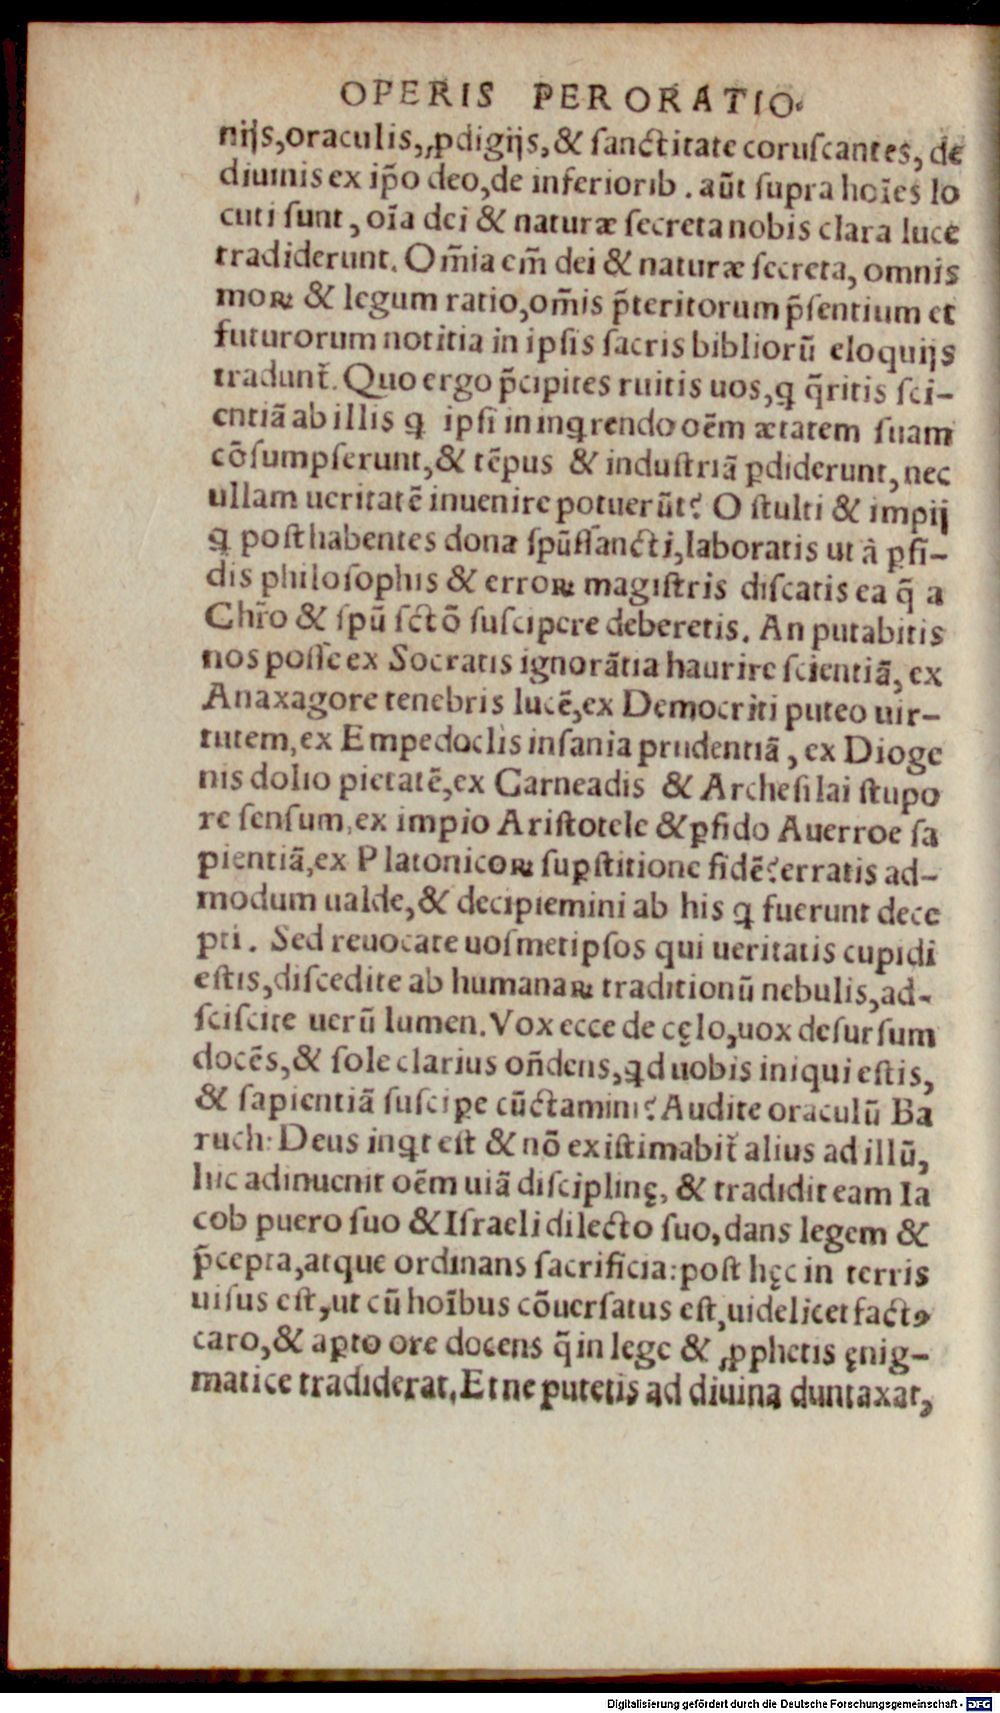 OPERIS PERORATIO.
nijs, oraculis, ꝓdigijs, & ſanctitate coruſcantes, de
diuinis ex ip̄o deo, de inferiorib. aūt ſupra hoīes lo
cuti ſunt, oīa dei & naturæ ſecreta nobis clara luce
tradiderunt. Om̄ia em̄ dei & naturæ ſecreta, omnis
moꝝ & legum ratio, om̄is p̄teritorum p̄ſentium et
futurorum notitia in ipſis ſacris bibliorū eloquijs
tradunt᷑. Quo ergo p̄cipites ruitis uos, ꝗ q̄ritis ſci-
entiā ab illis ꝗ ipſi in inꝗrendo oēm ætatem ſuam
cōſumpſerunt, & tēpus & induſtriā ꝑdiderunt, nec
ullam ueritatē inuenire potuerūt? O ſtulti & impij
ꝗ poſthabentes dona ſpūſſancti, laboratis ut à ꝑfi-
dis philoſophis & erroꝝ magiſtris diſcatis ea q̄ a
Chr̄o & ſpū ſctō ſuſcipere deberetis. An putabitis
nos poſſe ex Socratis ignorātia haurire ſcientiā, ex
Anaxagore tenebris lucē, ex Democriti puteo uir-
tutem, ex Empedoclis inſania prudentiā, ex Dioge
nis dolio pietatē, ex Carneadis & Archeſilai ſtupo
re ſenſum, ex impio Ariſtotele & ꝑfido Auerroe ſa
pientiā, ex Platonicoꝝ ſuꝑſtitione fidē? erratis ad-
modum ualde, & decipiemini ab his ꝗ fuerunt dece
pti. Sed reuocate uoſmetipſos qui ueritatis cupidi
eſtis, diſcedite ab humanaꝝ traditionū nebulis, ad-
ſciſcite uerū lumen. Vox ecce de cęlo, uox deſurſum
docēs, & ſole clarius on̄dens, ꝗd uobis iniqui eſtis,
& ſapientiā ſuſciꝑe cūctamini? Audite oraculū Ba
ruch: Deus inꝗt eſt & nō exiſtimabit᷑ alius ad illū,
hic adinuenit oēm uiā diſciplinę, & tradidit eam Ia
cob puero ſuo & Iſraeli dilecto ſuo, dans legem &
p̄cepta, atque ordinans ſacrificia: poſt hęc in terris
uiſus eſt, ut cū hoībus cōuerſatus eſt, uidelicet factꝰ
caro, & aꝑto ore docens q̄ in lege & ꝓphetis ęnig-
matice tradiderat. Et ne putetis ad diuina duntaxat,
Digitalisierung gefördert durch die Deutsche Forschungsgemeinschaft - DFG